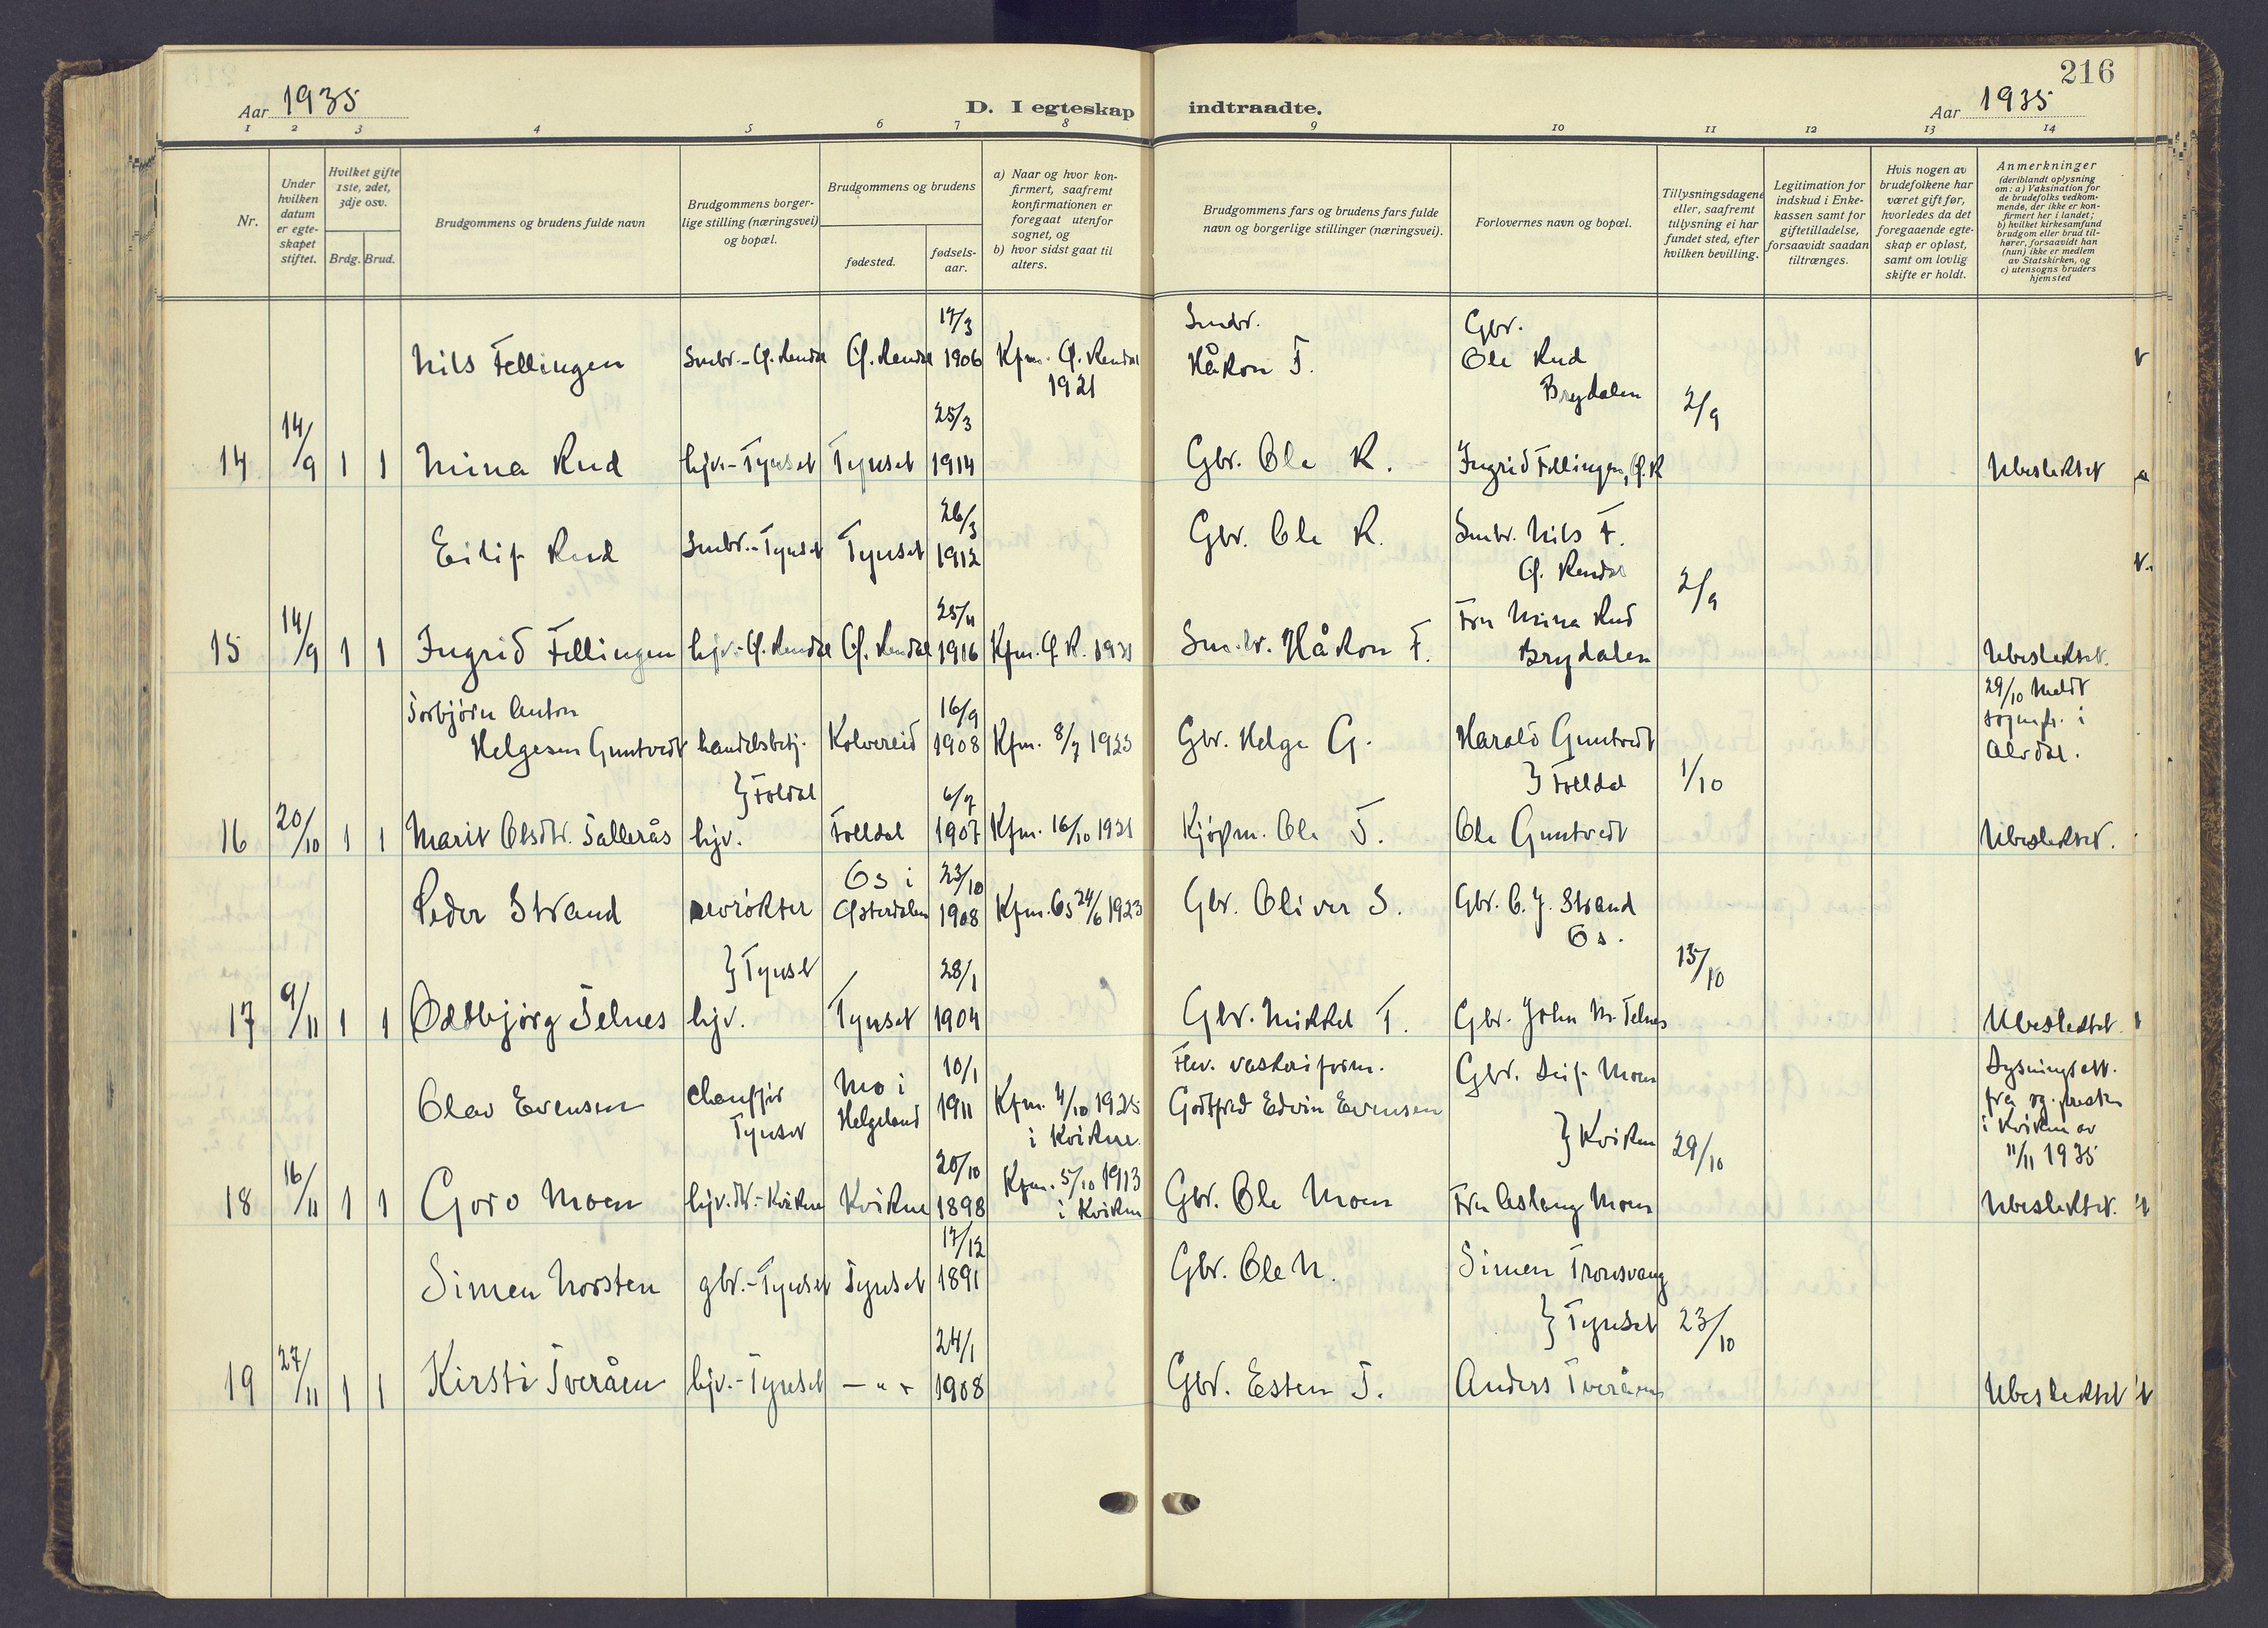 216
Aar 1935
D. I egteskap indtraadte.
Aar 1935
1 2 3 4 5 6 7 8 9 10 11 12 13 14
Nr.
Under hvilken datum er egteskapet stiftet.
Hvilket gifte 1ste, 2det, 3dje osv.
Brdg. Brud.
Brudgommens og brudens fulde navn
Brudgommens borgerlige stilling (næringsvei) og bopæl.
Brudgommens og brudens
fødested.
fødselsaar.
a) Naar og hvor konfirmert, saafremt konfirmationen er foregaat utenfor sognet, og
b) hvor sidst gaat til alters.
Brudgommens fars og brudens fars fulde navn og borgerlige stillinger (næringsvei).
Forlovernes navn og bopæl.
Tillysningsdagene eller, saafremt tillysning ei har fundet sted, efter hvilken bevilling.
Legitimation for indskud i Enkekassen samt for giftetilladelse, forsaavidt saadan tiltrænges.
Hvis nogen av brudefolkene har været gift før, hvorledes da det foregaaende egteskap er opløst, samt om lovlig skifte er holdt.
Anmerkninger
(deriblandt oplysning om: a) Vaksination for de brudefolks vedkommende, der ikke er konfirmert her i landet; b) hvilket kirkesamfund brudgom eller brud tilhører, forsaavidt han (hun) ikke er medlem av Statskirken, og c) utensogns bruders hjemsted
17/3 Smbr. Gbr.
Nils Fellingen Smbr.-Ø. Rendal Ø. Rendal 1906 Kfm. Ø. Rendal 1921 Håkon F. Ole Rud
Brydalen 2/9
14 14/9 1 1 Mina Rud hjv.-Tynset Tynset 25/3 1914 Gbr. Ole R. Ingrid Fellingen, Ø.R Ubeslektet
Eilif Rud Smbr.-Tynset Tynset 26/3 1912 Gbr. Ole R. Smbr. Nils F.
Ø. Rendal 2/9
Fru Mina Rud
15 14/9 1 1 Ingrid Fellingen hjv.-Ø. Rendal Ø. Rendal 25/11 1916 Kfm. Ø.R. 1931 Smbr. Håkon F. Brydalen Ubeslektet.
Torbjørn Anton
Helgesen Gruntvedt handelsbetj. Kolvereid 16/9 1908 Kfm. 8/7 1923 Gbr. Helge G. Harald Gruntvedt
29/10 Meldt
sognepr. i
Alvdal.
} Foldal } Folldal 1/10
16 20/10 1 1 Marit Olsdtr. Tallerås hjv. Folldal 6/7 1907 Kfm. 16/10 1921 Kjøpm. Ole T. Ole Gruntvedt Ubeslektet.
Peder Strand revrøkter Os i Østerdalen 23/10 1908 Kfm. Os 24/6 1923 Gbr. Oliver S. Gbr. O. J. Strand
Os.
} Tynset 15/10
17 9/11 1 1 Oddbjørg Telnes hjv. Tynset 28/1 1904 Gbr. Mikkel T. Gbr. John M. Telnes Ubeslektet.
Olav Evensen chauffør Tynset Mo i Helgeland 10/1 1911 Kfm. 4/10 1925 i Kvikne. Fhv. vaskeriform. Godtfred Edvin Evensen Gbr. Leif Moen
} Kvikne 29/10
Lysningsatt.
fra sg. presten
i Kvikne av
11/11 1935
18 16/11 1 1 Goro Moen hjv. dtr.-Kvikne Kvikne 20/10 1898 Kfm. 5/10 1913 i Kvikne Gbr. Ole Moen Fru Aslaug Moen Ubeslektet.
Simen Norsten gbr.-Tynset Tynset 17/12 1891 Gbr. Ole N. Simen Tronsvang
} Tynset 23/10
19 27/11 1 1 Kirsti Tveråen hjv.-Tynset — " — 24/1 1908 Gbr. Esten T. Anders Tveråen Ubeslektet